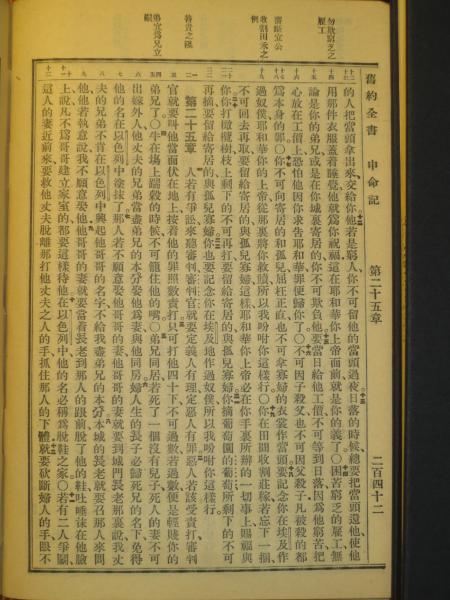 舊約全書　申命記　第二十五章　二百四十二
的人把當頭拿出來交給你他若是窮人你不可留他的當頭過夜日落的時候總要把當頭還他使他
用那件衣服蓋着睡覺他就爲你祝福這在耶和華你上帝面前就是你的義了〇困苦窮乏的雇工無
論是你的弟兄或是在你城裏寄居的你不可欺負他要當日給他工價不可等到日落因爲他窮苦把
心放在工價上恐怕他因你求告耶和華罪便歸你了〇不可因子殺父也不可因父殺子凡被殺的都
爲本身的罪〇你不可向寄居的和孤兒屈枉正直也不可拿寡婦的衣裳作當頭要記念你在埃及作
過奴僕耶和華你的上帝從那裏將你救贖所以我吩咐你這樣行〇你在田間收割莊稼若忘下一捆
不可回去再取要留給寄居的與孤兒寡婦這樣耶和華你上帝必在你手裏所辦的一切事上賜福與
你你打橄欖樹枝上剩下的不可再打要留給寄居的與孤兒寡婦你摘葡萄園的葡萄所剩下的不可
再摘要留給寄居的與孤兒寡婦你也要記念你在埃及地作過奴僕所以我吩咐你這樣行
第二十五章　人若有爭訟來聽審判審判官就要定義人有理定惡人有罪惡人若該受責打審判
官就要叫他當面伏在地上按着他的罪照數責打只可打他四十下不可過數若過數便是輕賤你的
弟兄了〇牛在場上踹穀的時候不可籠住他的嘴〇弟兄同居若死了一個沒有兒子死人的妻不可
出嫁外人他丈夫的兄弟當盡弟兄的本分娶他爲妻與他同房婦人生的長子必歸死兄的名下免得
他的名在以色列中塗抹了那人若不願意娶他哥哥的妻他哥哥的妻就要到城門長老那裏說我丈
夫的兄弟不肯在以色列中興起他哥哥的名字不給我盡弟兄的本分本城的長老就要召那人來問
他他若執意說我不願意娶他他哥哥的妻就要當着長老到那人的跟前脫了他的鞋吐唾沫在他臉
上說凡不爲哥哥建立家室的都要這樣待他在以色列中他的名必稱爲脫鞋之家〇若有二人爭鬬
這人的妻近前來要救他丈夫脫離那打他丈夫之人的手抓住那人的下體就要砍斷婦人的手眼不
勿欺窮乏之
雇工
審斷宜公
收割田禾之
例
弟宜爲兄立
嗣